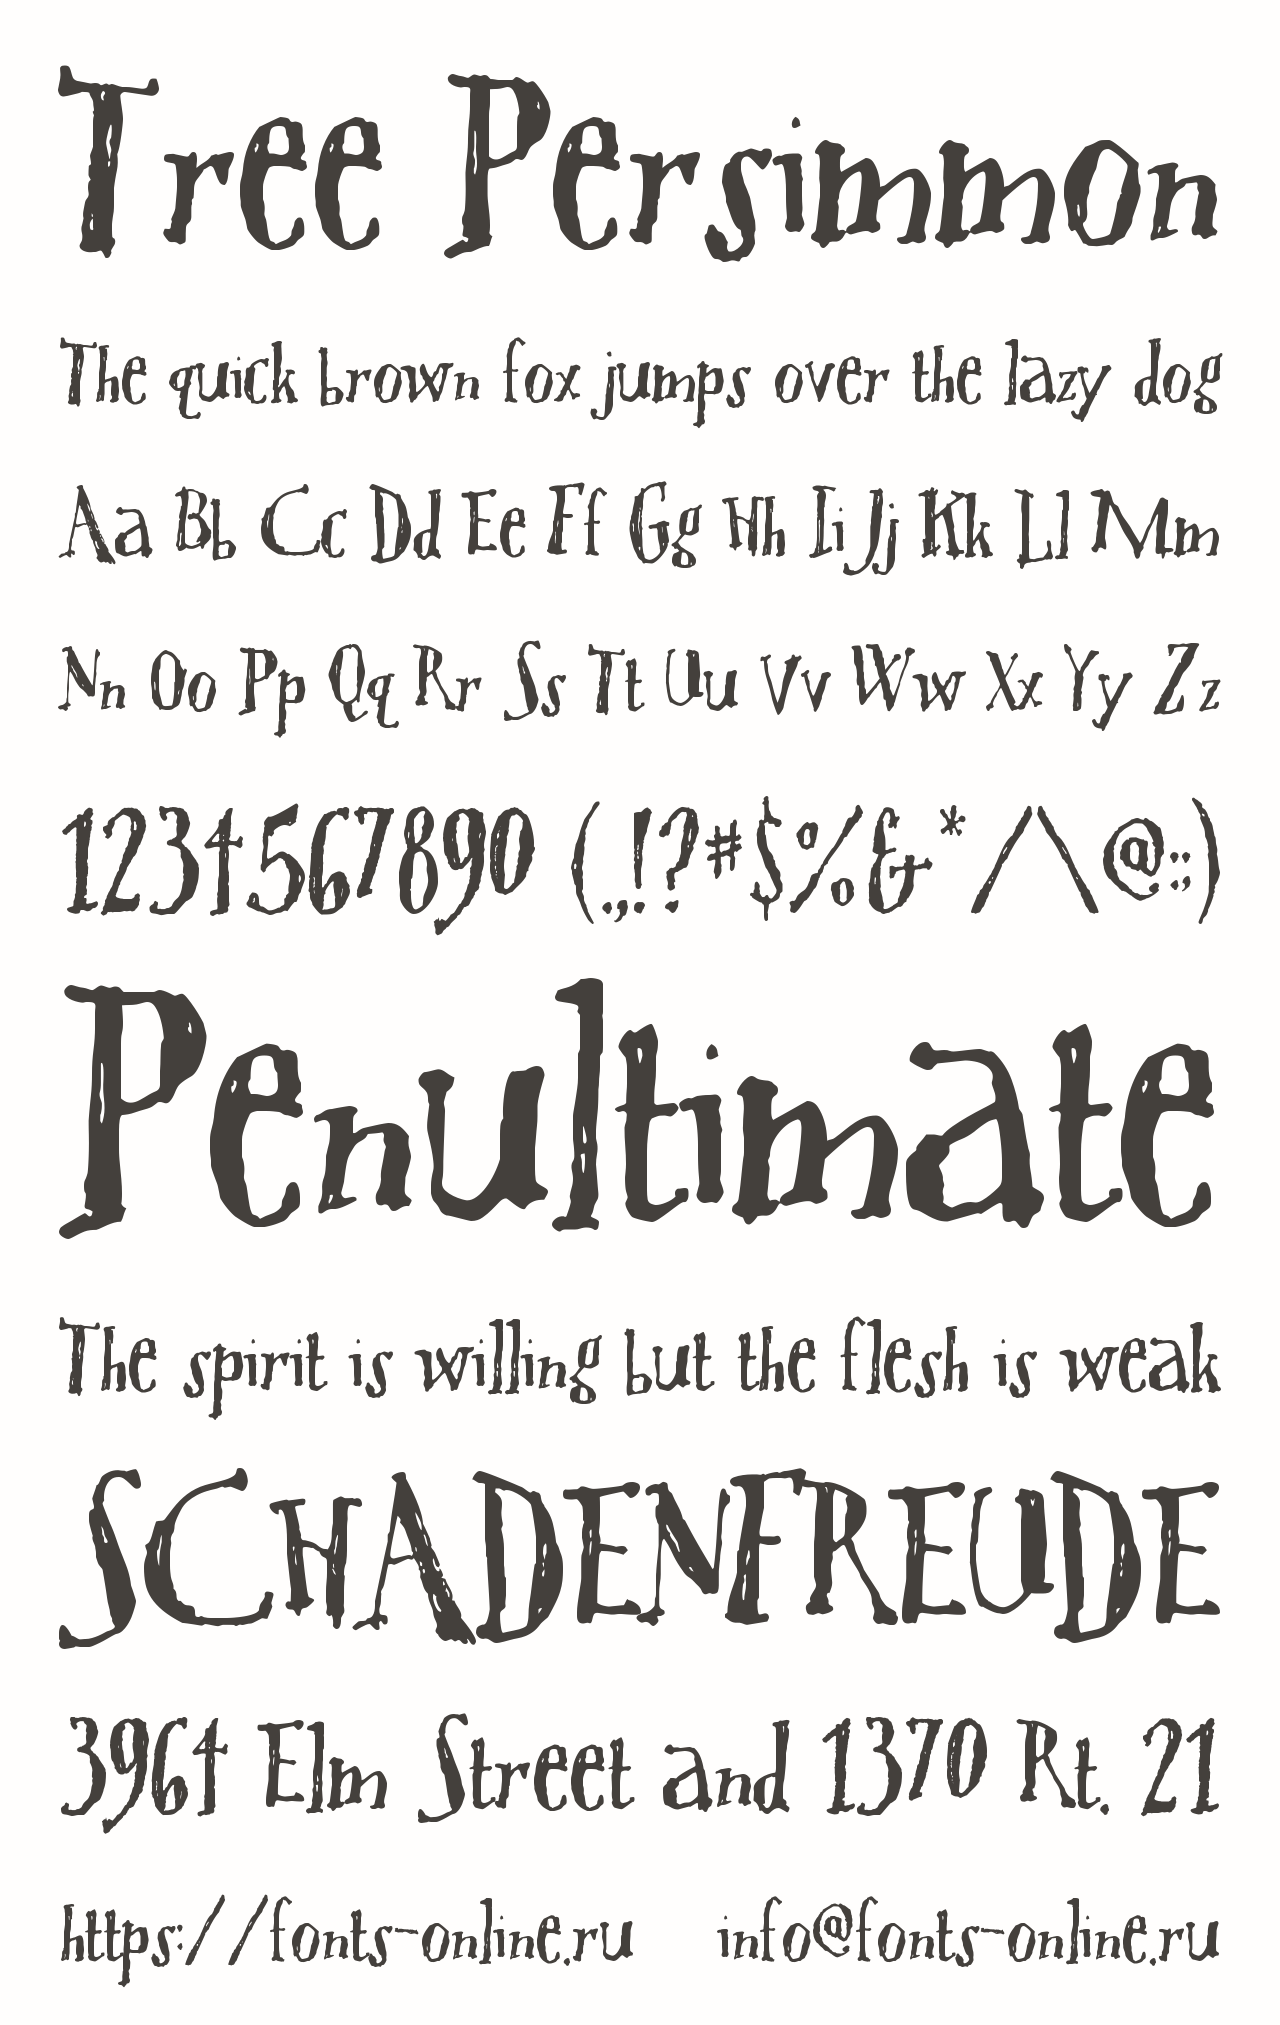 Tree Persimmon
The quick brown fox jumps over the lazy dog
Aa Bb Cc Dd Ee Ff Gg Hh Ii Jj Kk Ll Mm
Nn Oo Pp Qq Rr Ss Tt Uu Vv Ww Xx Yy Zz
1234567890 (.,!?#$%&*/\@:;)
Penultimate
The spirit is willing but the flesh is weak
SCHADENFREUDE
3964 Elm Street and 1370 Rt. 21
https://fonts-online.ru info@fonts-online.ru